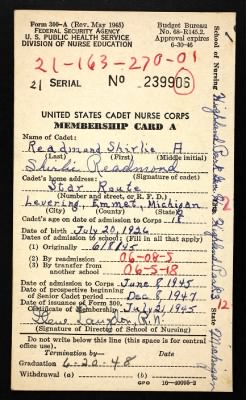 Form 300-A (Rev. May 1945)
FEDERAL SECURITY AGENCY
U. S. PUBLIC HEALTH SERVICE
DIVISION OF NURSE EDUCATION
Budget Bureau
No. 68-R145.2.
Approval expires
6-30-46
21-163-270-01
21 SERIAL No 239906
UNITED STATES CADET NURSE CORPS
MEMBERSHIP CARD A
Name of Cadet:
Readmond Shirlie A
(Last) (First) (Middle initial)
Shirlie Readmond
Cadet's home address: (Signature of cadet)
Star Route
(Number and street, or R. F. D.)
Levering, Emmet, Michigan
(City) (County) (State)
Cadet's age on date of admission to Corps 18
Date of birth July 20, 1926
Dates of admission to school: (Fill in all that apply)
(1) Originally 6/8/45
(2) By readmission 06-08-5
(3) By transfer from another school 06-5-18
Date of admission to Corps June 8, 1945
Date of prospective beginning of Senior Cadet period Dec 8, 1947
Date of issuance of Form 300, Certificate of Membership July 2, 1945
R.N.
(Signature of Director, School of Nursing)
Do not write below this line (this space is for central office use.)
Termination by— Date
Graduation 6-20-48
Withdrawal (a) (b)
GPO 16-40095-2
School of Nursing Highland Park Gen. Hosp. Highland Park 3
State Michigan
12